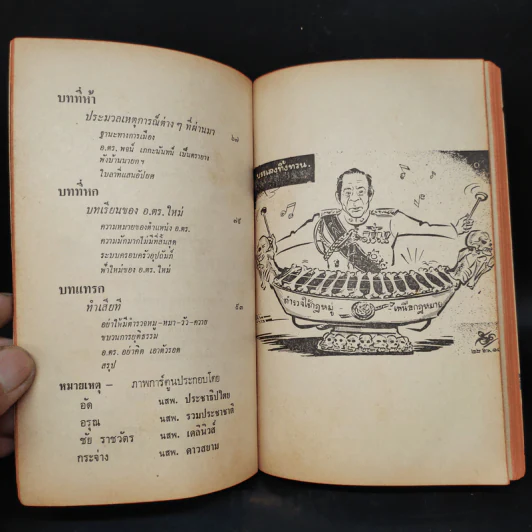 บทที่ห้า
ประมวลเหตุการณ์ต่าง ๆ ที่ผ่านมา
ฐานะทางการเมือง
อ.ตร. พจน์ เภกะนันทน์ เป็นตรายาง
พังบ้านนายกฯ
ใบลาที่แสนอัปยศ
บทที่หก
บทเรียนของ อ.ตร. ใหม่ ๘๙
ความหมายของตำแหน่ง อ.ตร.
ความมักมากไม่มีที่สิ้นสุด
ระบบครอบครัวอุปถัมภ์
ฟ้าใหม่ของ อ.ตร. ใหม่
บทแทรก
ทำเสียที ๕๓
อย่าให้มีตำรวจหมู-หมา-วัว-ควาย
ขบวนการยุติธรรม
อ.ตร. อย่าคิด เอาตัวรอด
สรุป
หมายเหตุ – ภาพการ์ตูนประกอบโดย
อ๊ด นสพ. ประชาธิปไตย
อรุณ นสพ. รวมประชาชาติ
ชัย ราชวัตร นสพ. เดลินิวส์
กระจ่าง นสพ. ดาวสยาม
บทเพลงที่งทวน.
ตำรวจใช้กฎหมู่ เหนือกฎหมาย